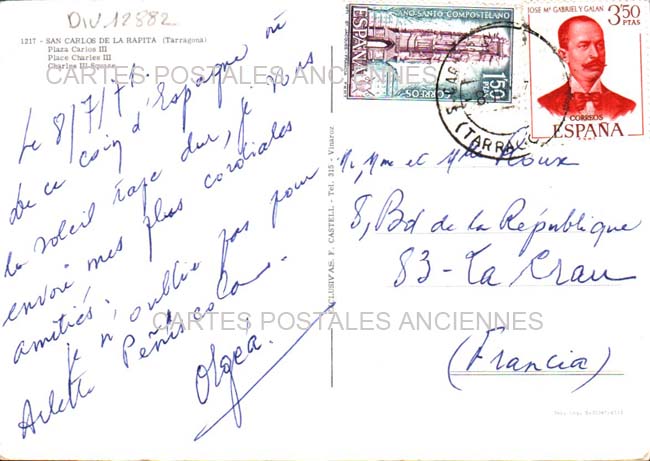 DIV.12882.
1217 - SAN CARLOS DE LA RAPITA (Tarragona)
Plaza Carlos III
Place Charles III
Charles III Square
CARTES POSTALES ANCIENNES
Le 8/7/71.
De ce coin d'Espagne où
le soleil tape dur, je vous
envoie mes plus cordiales
amitiés.
je n'oublie pas pour
Arlette Peñiscola.
Olga.
EXCLUSIVAS. F. CASTELL - Tel. 315 - Vinaroz
AÑO SANTO COMPOSTELANO
ESPAÑA
1'50 PTAS
CORREOS
JOSE Mª GABRIEL Y GALAN
3,50
PTAS
CORREOS
ESPAÑA
(TARRAG
Mr, Mme et Mlle Roux
8, Bd de la République
83-La Crau
(Francia)
CARTES POSTALES ANCIENNES